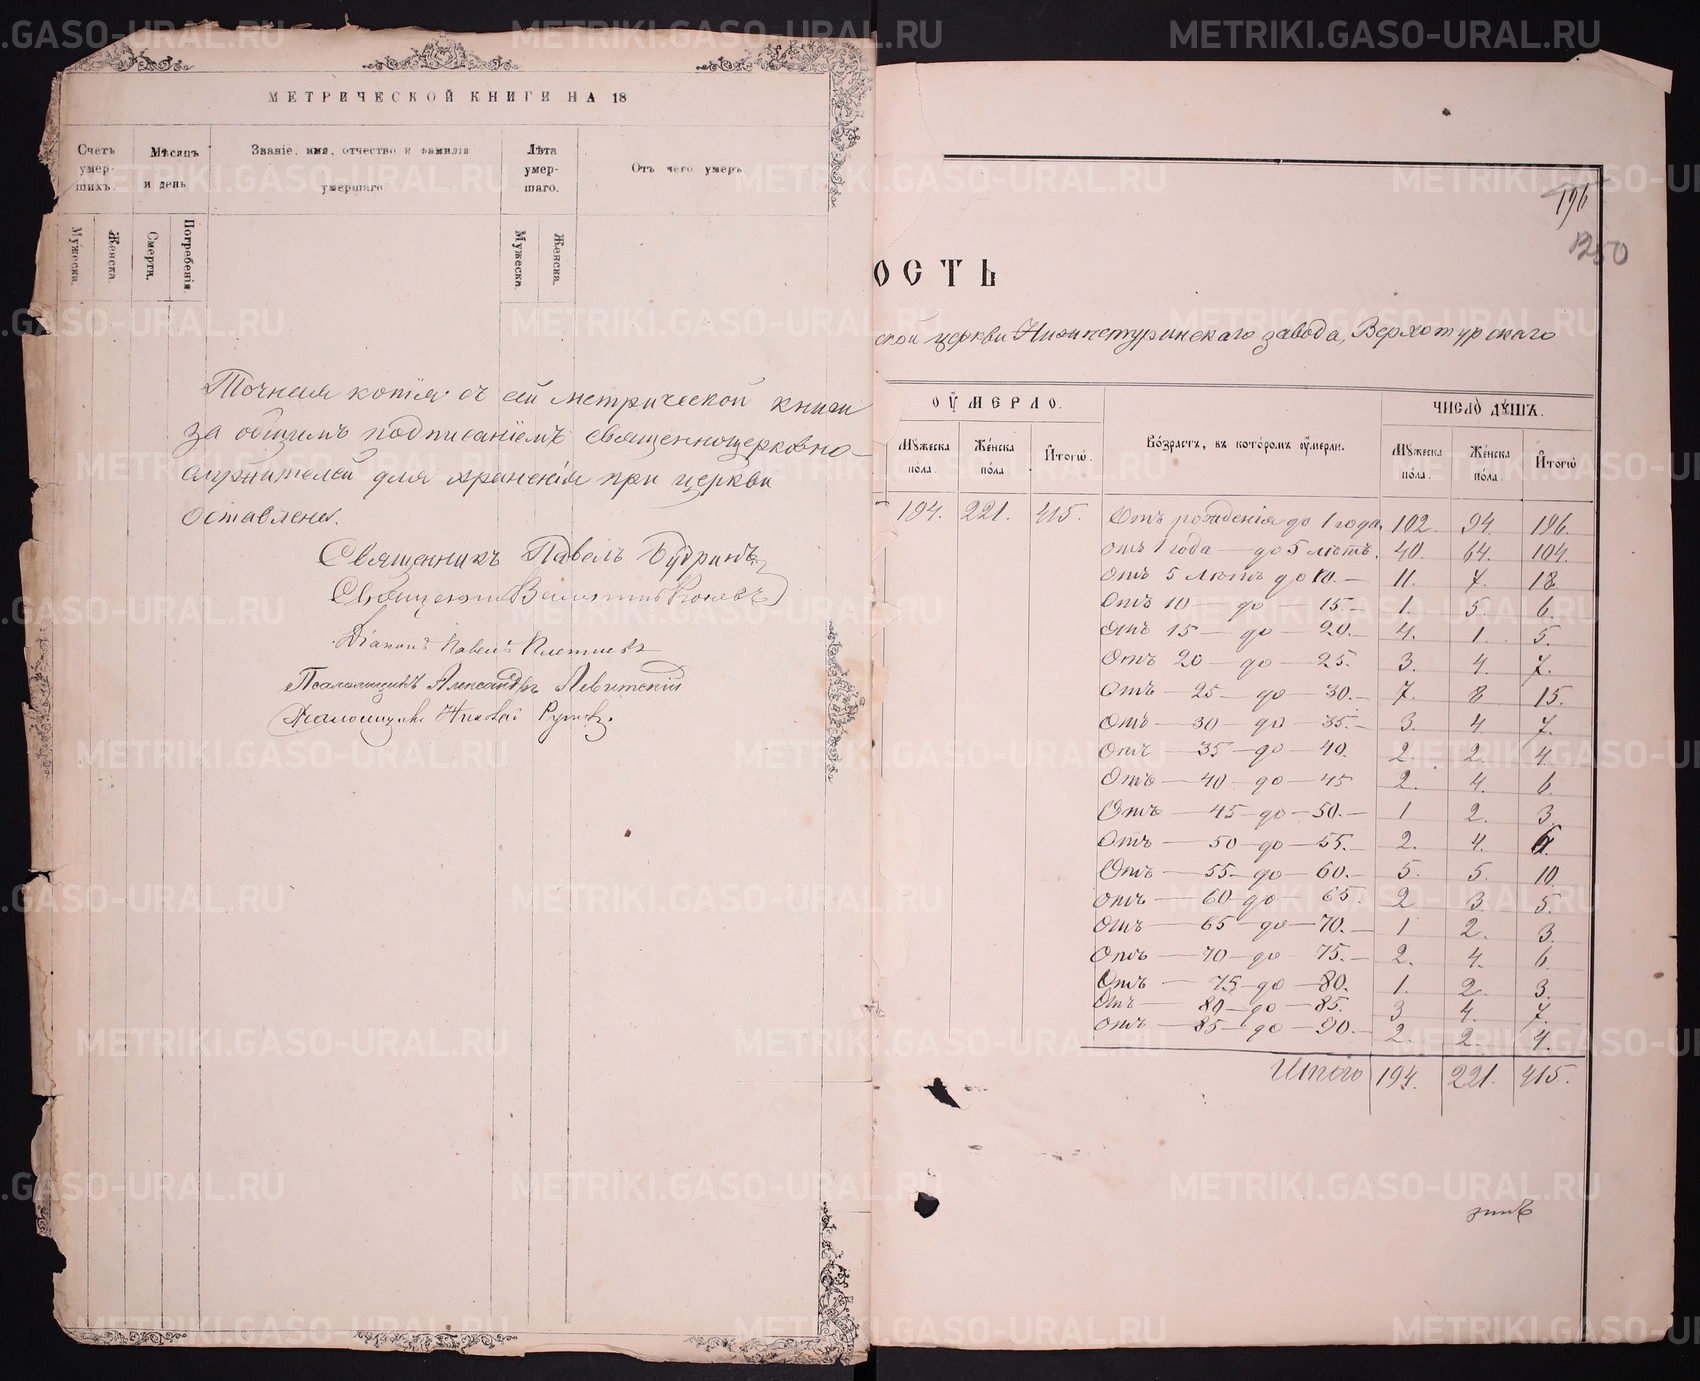 МЕТРИЧЕСКОЙ КНИГИ НА 18
Счетъ умер-шихъ.
Мѣсяцъ и день
Званіе, имя, отчество и фамилія умершаго
Лѣта умер-шаго.
Отъ чего умеръ
Мужеска.
Женска.
Смерти.
Погребенія
Мужеска
Женска.
Точная копія съ сей метрической книги
за общимъ подписаніемъ священноцерковно-
служителей для храненія при церкви
оставлена.
Священникъ Павелъ Будринъ
Священникъ Валентинъ
Діаконъ Павелъ
Псаломщикъ Александръ Левитскій
Псаломщикъ Николай
196
1250
ОСТЬ
ской церкви Нижнетуринскаго завода, Верхотурскаго
ОУМЕРЛО.
ЧИСЛО ДУШЪ.
Мужеска пола.
Женска пола.
Итого.
Возрастъ, въ которомъ оумерли.
Мужеска пола.
Женска пола.
Итого
194. 221. 415. Отъ рожденія до 1 года, 102. 94. 196.
отъ 1 года — до 5 лѣтъ. 40. 64. 104.
Отъ 5 лѣтъ до 10. — 11. 7. 18
Отъ 10 — до — 15. — 1. 5. 6.
Отъ 15 — до — 20. — 4. 1. 5.
Отъ 20 — до — 25. 3. 4. 7.
Отъ — 25 — до — 30. — 7. 8 15.
Отъ — 30 — до — 35. — 3. 4. 7.
Отъ — 35 — до — 40. 2. 2. 4.
Отъ — 40 — до — 45 2. 4. 6.
Отъ — 45 — до — 50. — 1 2. 3.
Отъ — 50 — до — 55. — 2. 4. 6.
Отъ — 55 — до — 60. — 5. 5. 10.
отъ — 60 — до — 65. 2. 3. 5.
Отъ — 65 — до — 70. — 1 2. 3.
Отъ — 70 — до — 75. — 2. 4. 6.
Отъ — 75 — до — 80. 1. 2. 3.
Отъ — 80 — до — 85. 3 4. 7.
отъ — 85 — до — 90. — 2. 2. 4.
Итого 194. 221. 415.
METRIKI.GASO-URAL.RU